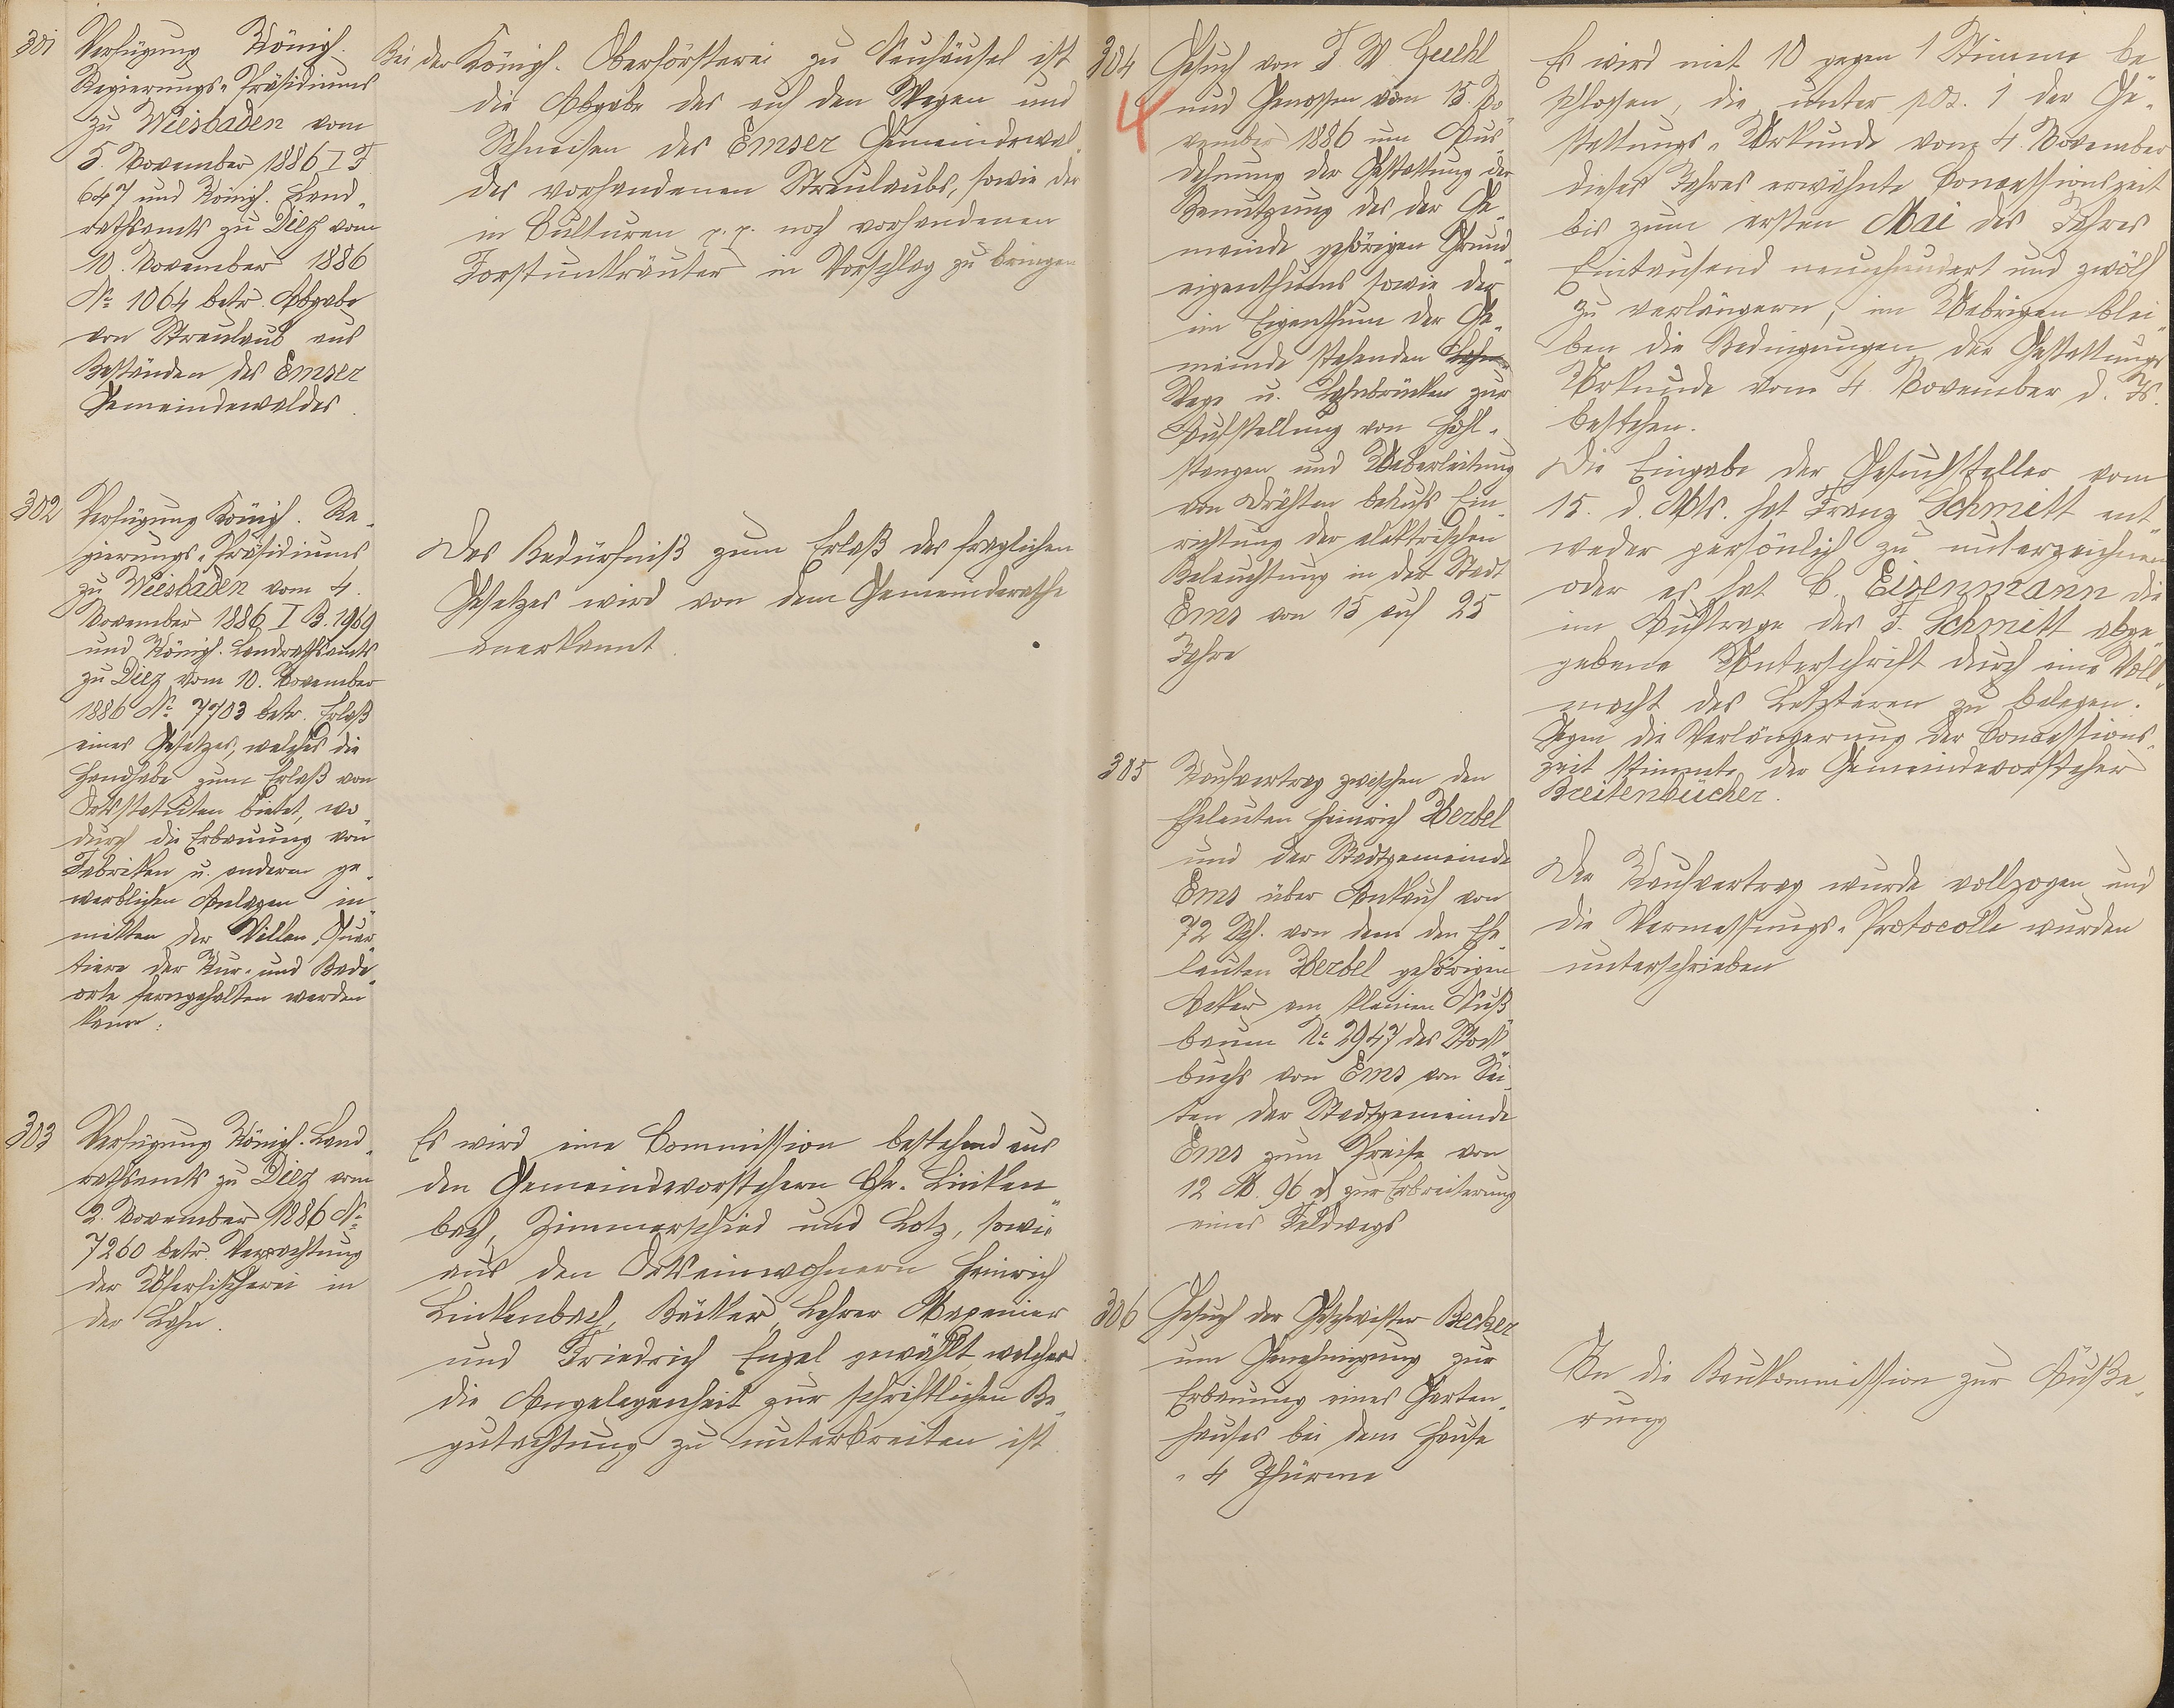 301
Verfügung Königl.
Regierungs-Präsidiums
zu Wiesbaden vom
5. November 1886 I F
647 und Königl. Land-
rathsamts zu Diez vom
10. November 1886
No 1064 betr. Abgabe
von Streulaub aus
Beständen des Emser
Gemeindewaldes.
Bei der Königl. Oberförsterei zu Neuhäusel ist
die Abgabe des auf den Wegen und
Schneisen des Emser Gemeindewal-
des vorhandenen Streulaubs, sowie der
in Culturen p. p. noch vorhandenen
Forstunkräuter in Vorschlag zu bringen
302
Verfügung Königl. Re-
gierungs-Präsidiums
zu Wiesbaden vom 4.
November 1886 I B. 1969
und Königl. Landrathsamts
zu Diez vom 10. November
1886 No 7703 betr. Erlaß
eines Gesetzes, welches die
Handhabe zum Erlaß von
Ortsstatuten bietet, wo-
durch die Erbauung von
Fabriken u. anderen ge-
werblichen Anlagen in-
mitten der Villen-Quar-
tiere der Kur- und Bade-
orte ferngehalten werden
kann.
Das Bedürfniß zum Erlaß des fraglichen
Gesetzes wird von dem Gemeinderathe
anerkannt.
303
Verfügung Königl. Land-
rathsamts zu Diez vom
2. November 1886 No
7260 betr. Verpachtung
der Uferfischerei in
der Lahn.
Es wird eine Commission bestehend aus
den Gemeindevorstehern Chr. Linken-
bach, Zimmerschied und Lotz, sowie
aus den Ortseinwohnern Heinrich
Linkenbach, Bäcker, Lehrer
und Friedrich Engel gewählt, welcher
die Angelegenheit zur schriftlichen Be-
gutachtung zu unterbreiten ist.
304
4
Gesuch von F W
und Genossen vom 15. No-
vember 1886 um Aus-
dehnung der Gestattung der
Benutzung des der Ge-
meinde gehörigen Grund-
eigenthums sowie der
im Eigenthum der Ge-
meinde stehenden
Wege u. Lahnbrücken zur
Aufstellung von Hohl-
stangen und Ueberleitung
von Drähten behufs Ein-
richtung der elektrischen
Beleuchtung in der Stadt
Ems von 15 auf 25
Jahre
Es wird mit 10 gegen 1 Stimme be-
schlossen, die unter pos. 1 der Ge-
stattungs-Urkunde vom 4. November
dieses Jahres erwähnte Concessionszeit
bis zum ersten Mai des Jahres
Eintausend neunhundert und zwölf
zu verlängern, im Uebrigen blei-
ben die Bedingungen der Gestattungs-
Urkunde vom 4. November d. Js.
bestehen.
Die Eingabe der Gesuchsteller vom
15. d. Mts. hat Franz Schmitt ent-
weder persönlich zu unterzeichnen
oder es hat C. Eisenmann die
im Auftrage des F. Schmitt abge-
gebene Unterschrift durch eine Voll-
macht des Letzteren zu belegen.
Gegen die Verlängerung der Concessions-
zeit stimmte der Gemeindevorsteher
Breitenbücher.
305
Kaufvertrag zwischen den
Eheleuten Heinrich Herbel
und der Stadtgemeinde
Ems über Ankauf von
72 Sch. von dem den Ehe-
leuten Herbel gehörigen
Acker am kleinen Nuß-
baum No 2947 des Stock-
buchs von Ems von Sei-
ten der Stadtgemeinde
Ems zum Preise von
12 M. 96 d zur Erbreiterung
eines Feldwegs
Der Kaufvertrag wurde vollzogen und
die Vermessungs-Protocolle wurden
unterschrieben
306
Gesuch der Geschwister Becker
um Genehmigung zur
Erbauung eines Garten-
hauses bei dem Hause
"4 Thürme
An die Baukommission zur Äuße-
rung